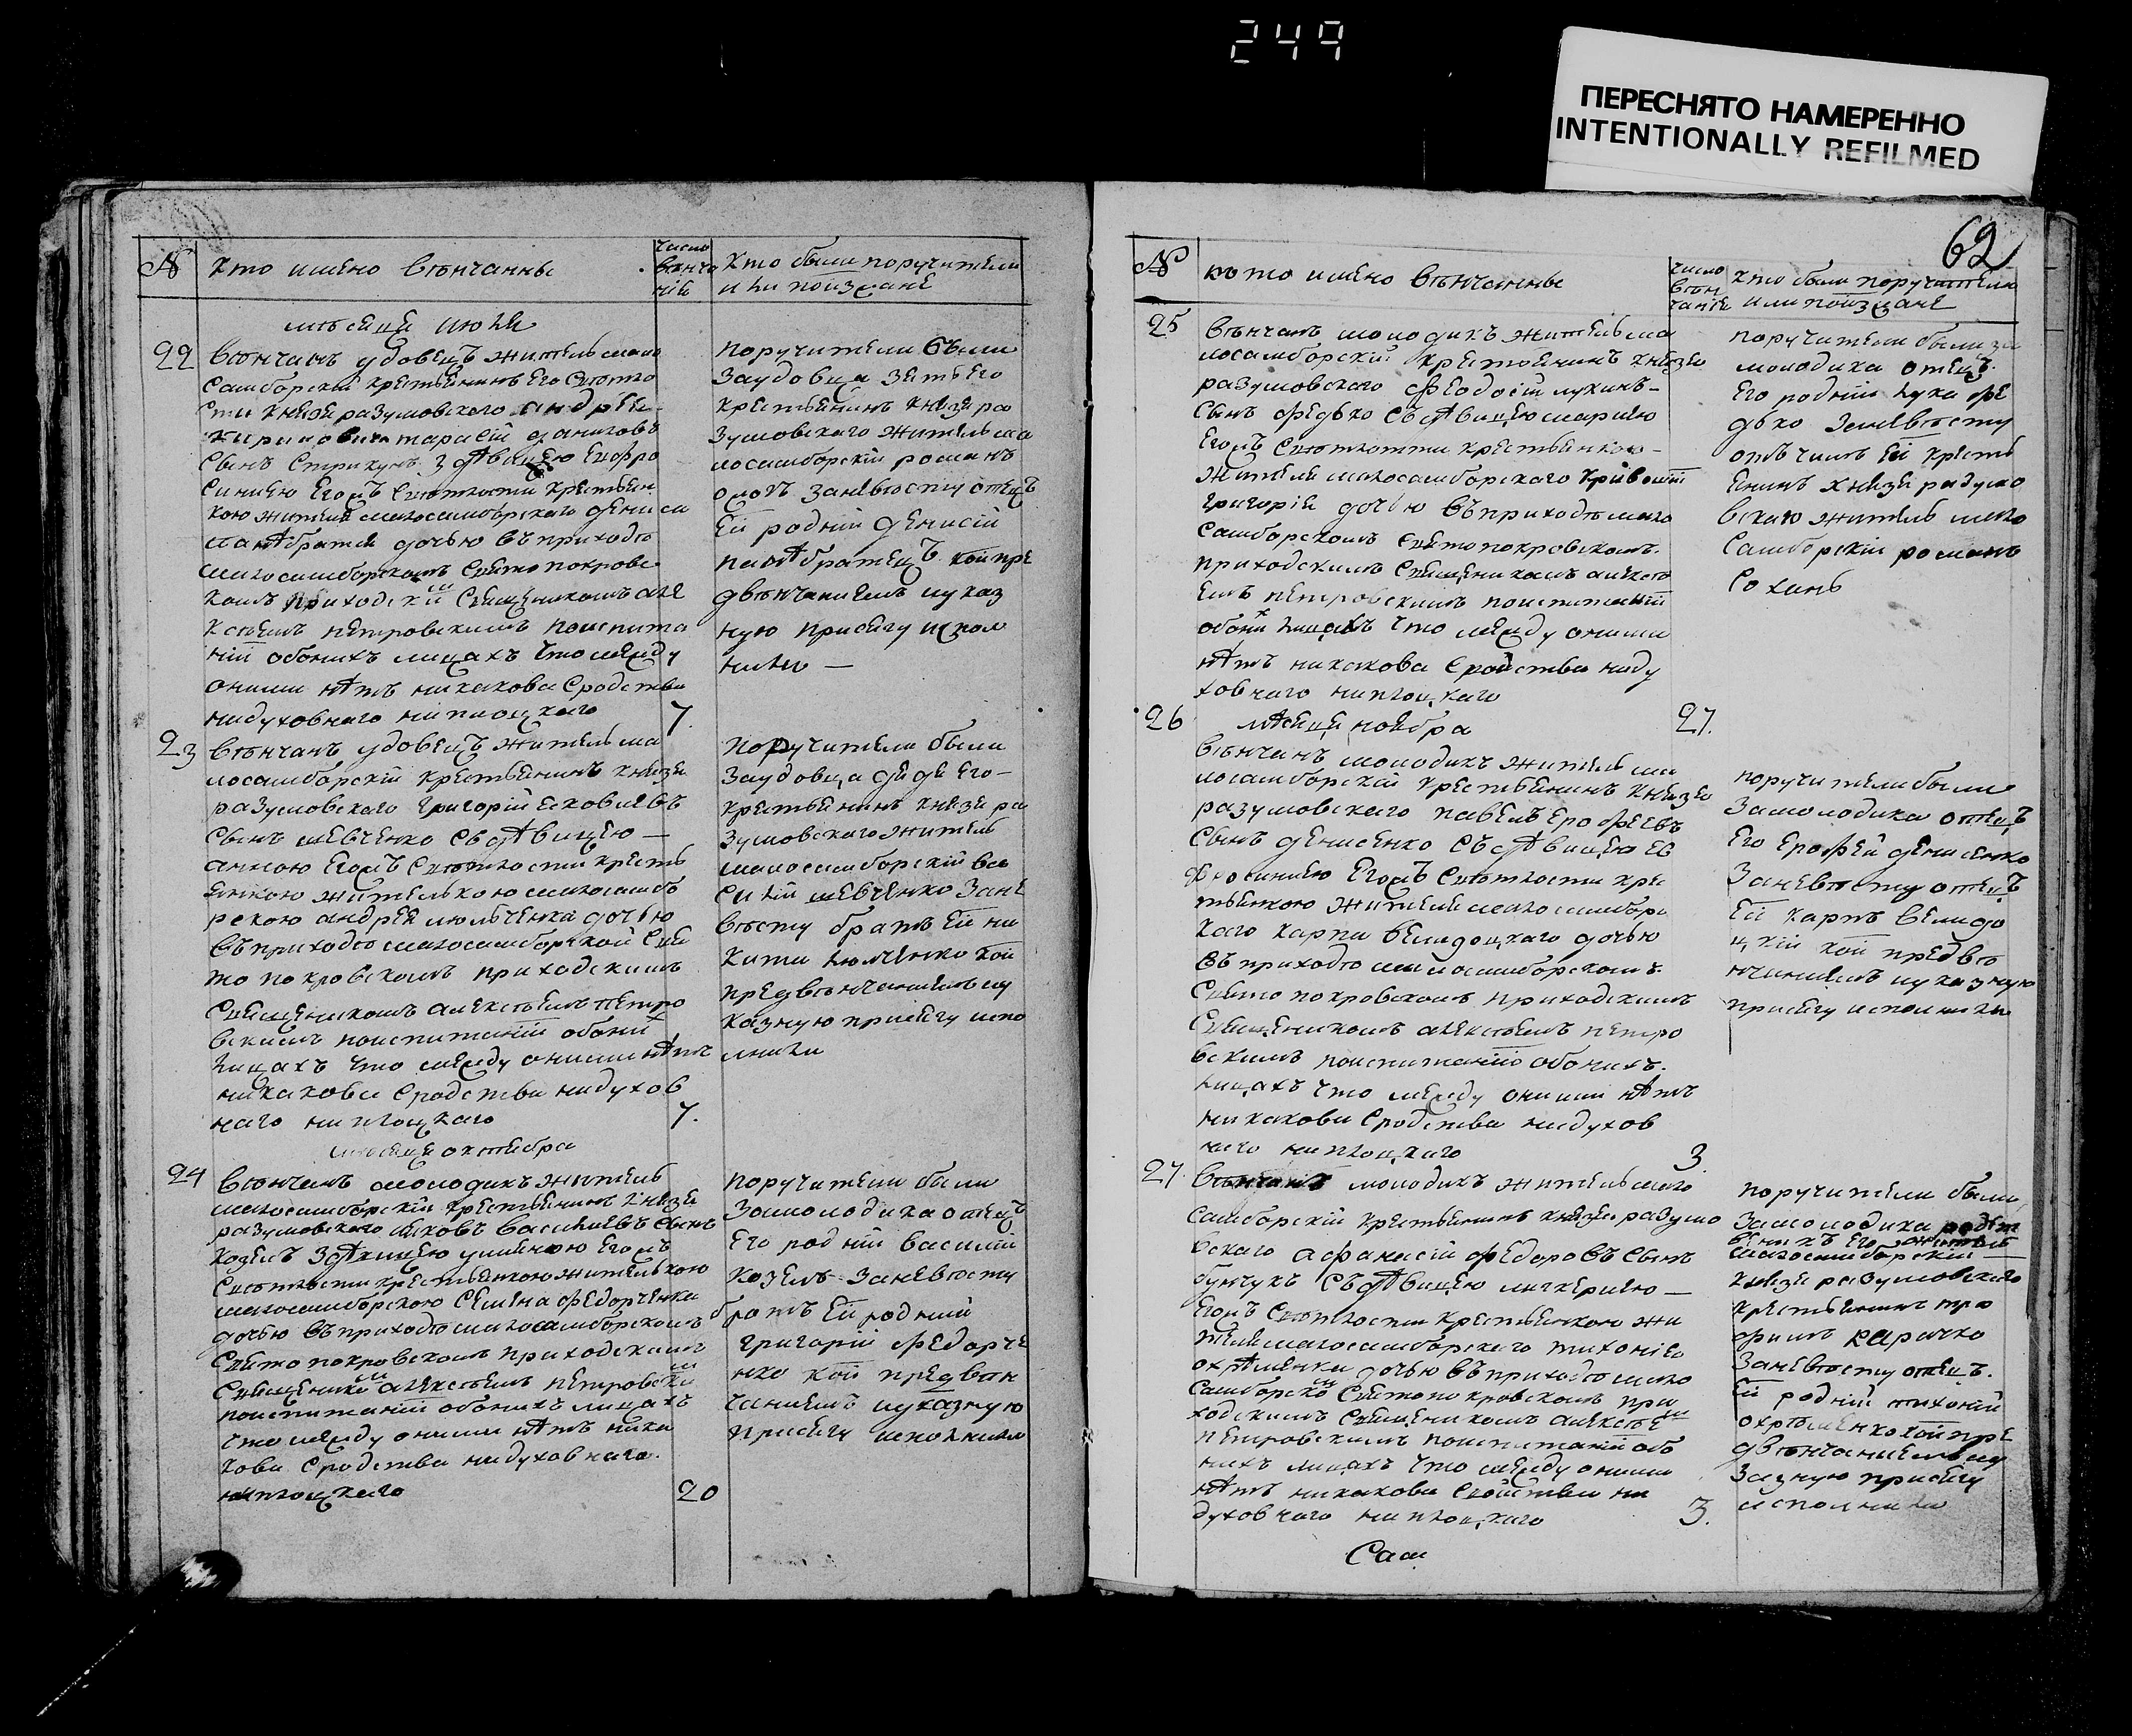 249
ПЕРЕСНЯТО НАМЕРЕННО
INTENTIONALLY REFILMED
62
№ кто имено вѣнчанны
число вѣнчанїя
кто были поручители
или поизжане
мѣсяця июля
22 вѣнчанъ удовецъ житель мало
самборскій крестьянинъ его свѣтло
сти князя разумовского андрея
кириловича тарасій даниловъ
сынъ стрикунъ з дѣвицею евфро
синиею егожъ свѣтлости крестьян
кою жителя малосамборского дениса
дочью въ приходѣ
малосамборскомъ свято покровс
комъ приходскимъ священикомъ але
ксѣемъ петровскимъ поиспита
ній обоихъ лицахъ что между
оними нѣтъ никакова сродства
нидуховнаго ниплоцкаго 7.
поручители были
заудовца зять его
крестьянинъ князя ра
зумовского житель ма
лосамборскій романъ
заневѣсту отецъ
ей родній денисій
кои пре
двѣнчаниемъ иуказ
ную присягу испол
нили —
23 вѣнчанъ удовецъ житель ма
лосамборскій крестьянинъ князя
разумовского григорій яковлевъ
сынъ шевченко съ дѣвицею —
анною егожъ свѣтлости кресть
янкою жителькою малосамбо
рскою андрея люльченка дочью
въ приходѣ малосамборской свя
то покровскомъ приходскимъ
священикомъ алексѣемъ петро
вскимъ поиспитаній обоих
лицахъ что между оними нѣтъ
никакова сродства нидухов
наго ниплоцкаго 7.
поручители были
заудовца дядя его —
крестьянинъ князя ра
зумовского житель
малосамборскій ва
силій шевченко зане
вѣсту братъ ей ни
кита люлченко кои
предвѣнчаниемъ иу
казную присягу испо
лнили
мѣсяця октября
24 вѣнчанъ молодикъ житель
малосамборскій крестьянинъ князя
разумовского яковъ василиевъ сынъ
козелъ з дѣвицею улияною егожъ
свѣтлости крестьянкою жителькою
малосамборскою семена федорченка
дочью въ приходѣ малосамборскомъ
свято покровскомъ приходскимъ
священиком алексѣемъ петровским
поиспитаній обоихъ лицахъ
что между оними нѣтъ ника
кова сродства нидуховнаго.
ниплоцкаго 20
поручители были
замолодика отецъ
его родній василій
козелъ заневѣсту
братъ ей родній
григорій федорче
нко кои предвѣн
чаниемъ иуказную
присягу исполнили
№ кѣто имено вѣнчанны
число вѣнчанїе
кто были поручители
или поизжане
25 вѣнчанъ молодикъ житель ма
лосамборскій крестьянинъ князя
разумовского феодосій лукинъ —
сынъ федько съ дѣвицею мариею
егожъ свѣтлости крестьянкою —
жителя малосамборского
григорія дочью въ приходѣ мало
самборскомъ святопокровскомъ
приходскимъ священикомъ алексѣ
емъ петровскимъ поиспитаній
обоих лицахъ что между оними
нѣтъ никакова сродства ниду
ховнаго ниплоцкаго
27.
поручители были за
молодика отецъ
его родній лука фе
дько заневѣсту
отвчимъ ей кресть
янинъ князя разумо
вского житель мало
самборскій романъ
сохань
26 мѣсяця ноября
вѣнчанъ молодикъ житель ма
лосамборскій крестьянинъ князя
разумовского павелъ ерофеевъ
сынъ денисенко съ дѣвицею ев
фросиниею егожъ свѣтлости крес
тьянкою жителя малосамборс
каго карпа велидоцкаго дочью
въ приходѣ малосамборскомъ
свято покровскомъ приходскимъ
священикомъ алексѣемъ петро
вскимъ поиспитанию обоихъ
лицахъ что между оними нѣтъ
никакова сродства нидухов
наго ниплоцкаго 3
поручители были
замолодика отецъ
его ерофей денисенко
заневѣсту отецъ
ей карпъ велидо
цкій кои предвѣ
нчаниемъ иуказную
присягу исполнили
27 вѣнчанъ молодикъ житель мало
самборскій крестьянинъ князя разумо
вского афанасій федоровъ сынъ
бунчукъ съ дѣвицею гликериею —
егожъ свѣтлости крестьянкою жи
теля малосамборского тихонія
охрѣменка дочью въ приходѣ мало
самборском святопокровскомъ при
ходскимъ священикомъ алексѣем
петровскимъ поиспитаній обо
ихъ лицахъ что между оними
нѣтъ никакова свойства ни
духовнаго ниплоцкаго 3.
поручители были
замолодика родст
веникъ его житель
малосамборскій
князя разумовского
крестьянинъ тро
фимъ карачко
заневѣсту отецъ
ей родній тихоній
охрѣменко кои пре
двѣнчаниемъ иу
казную присягу
исполнили
сам